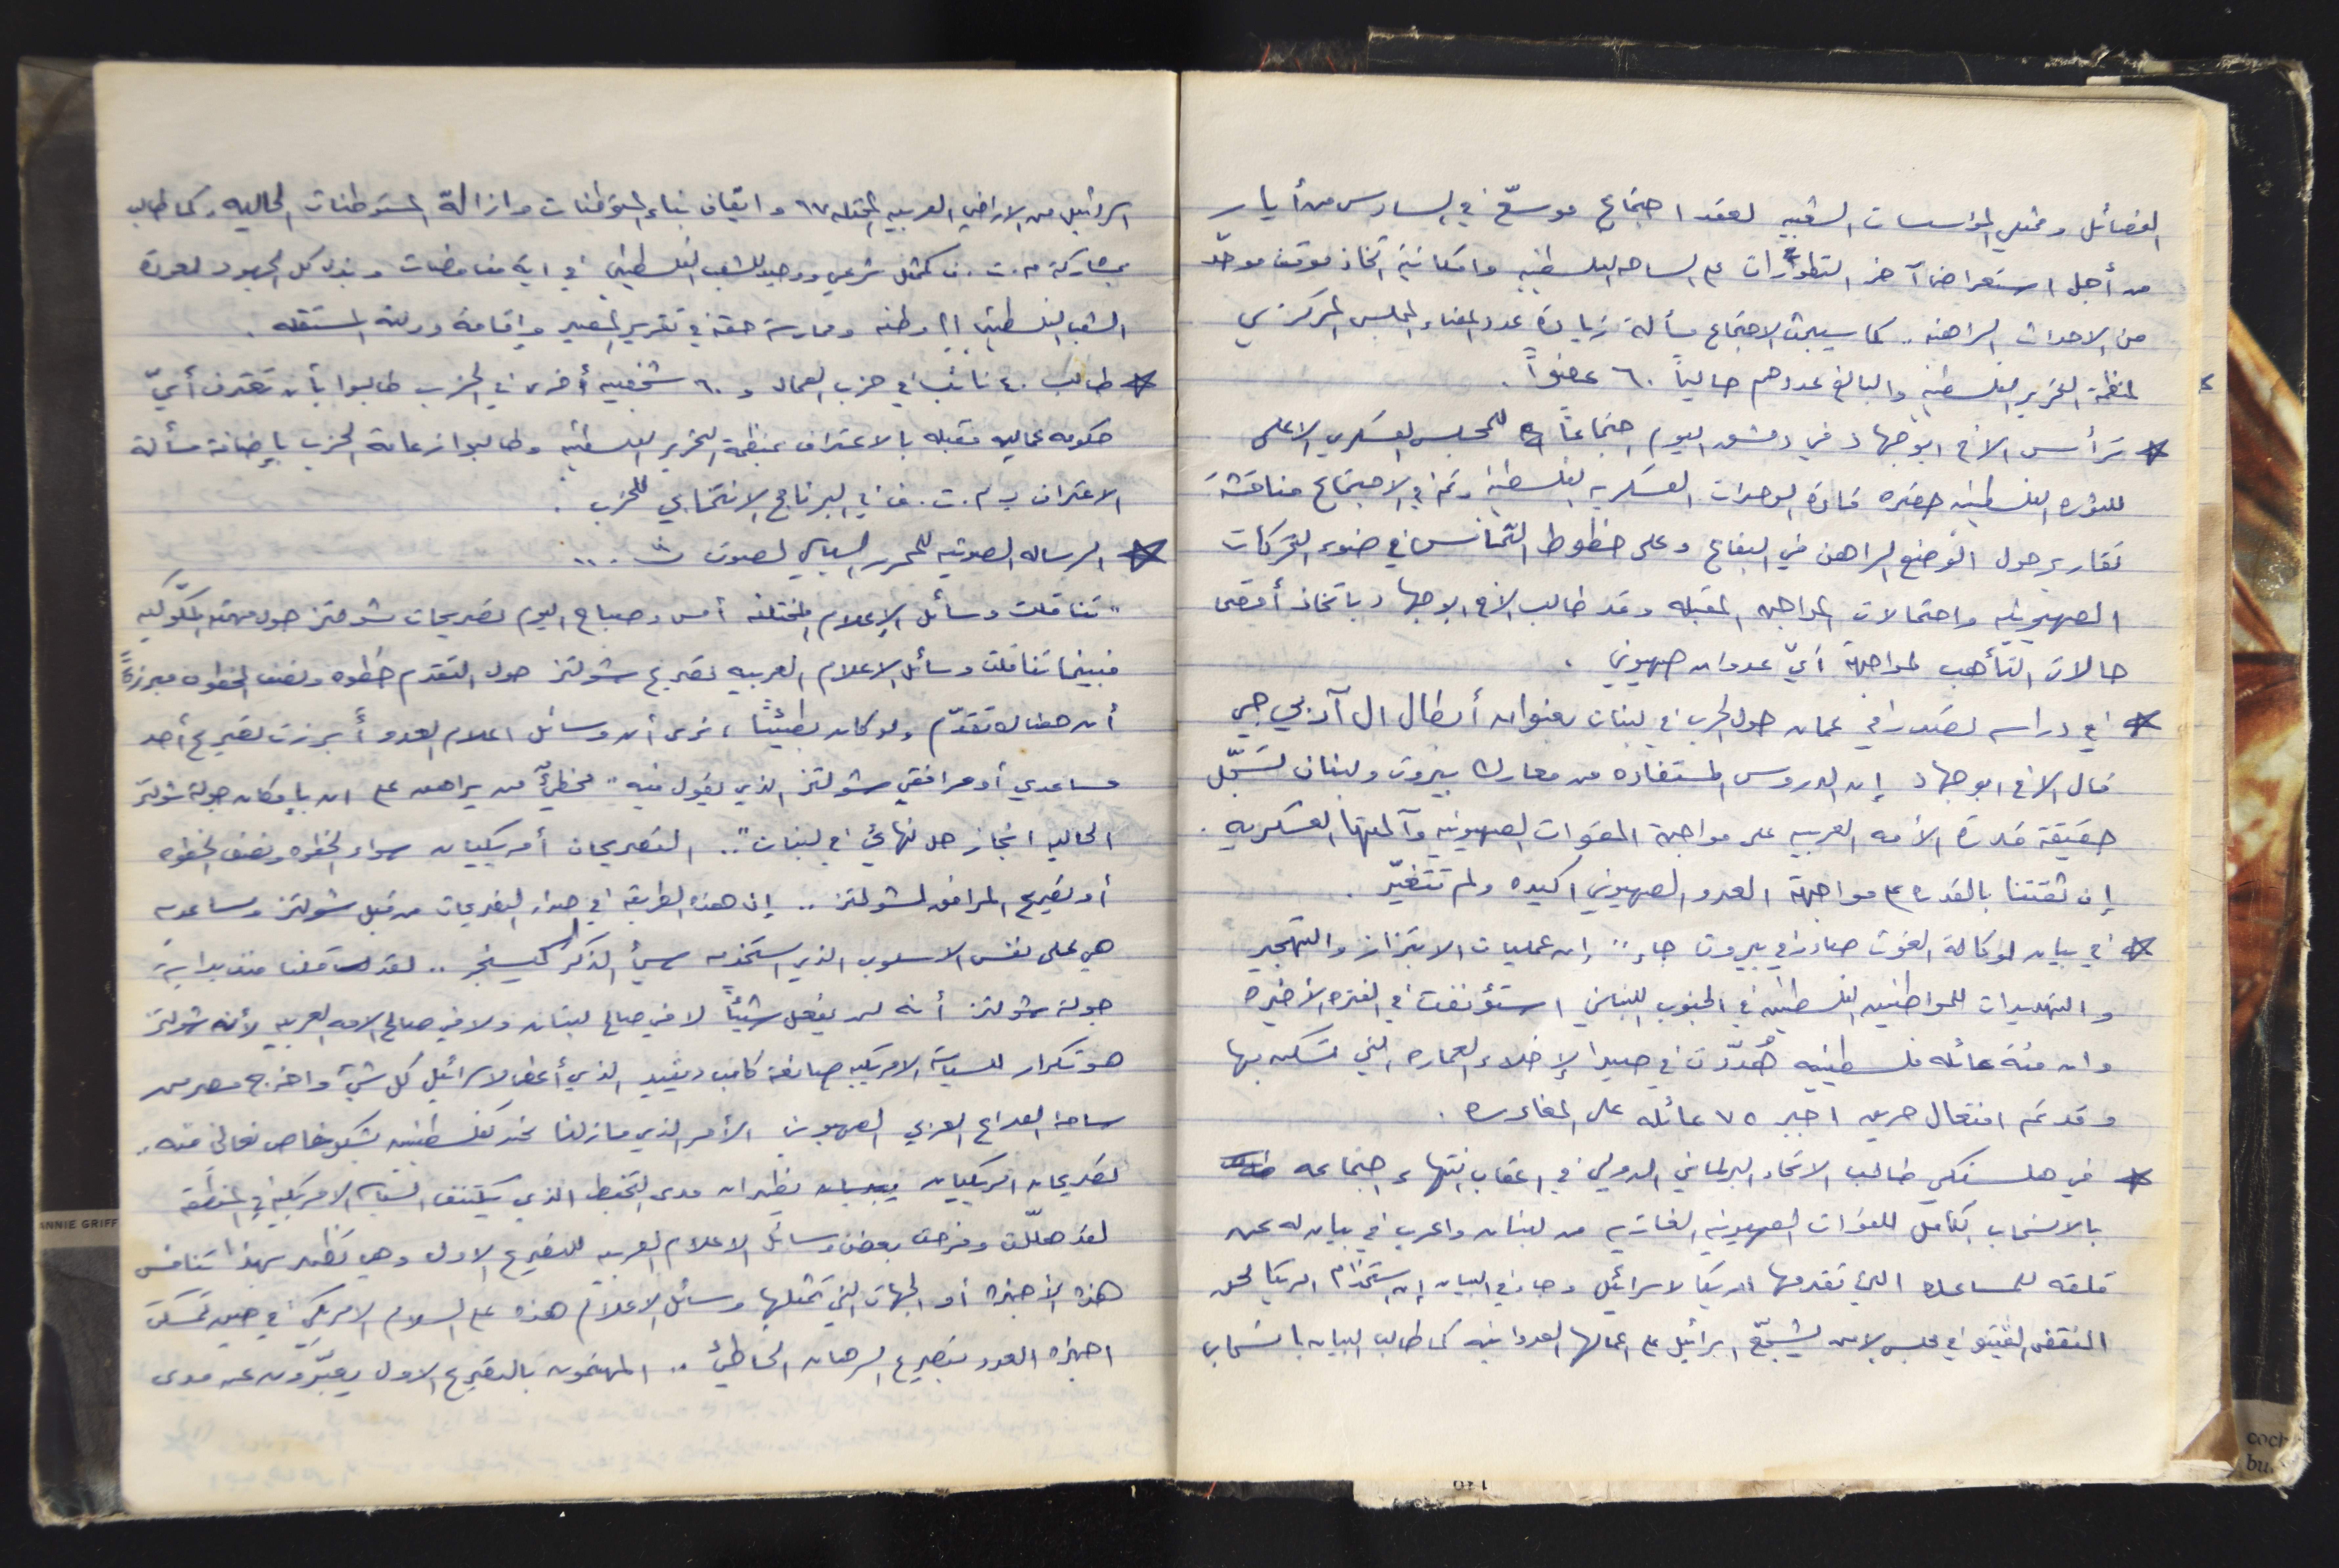 الفصائل وممثلي المؤسسات الشعبيه لعقد اجتماع موسّع في السادس من أيار
من أجل استعراض آخر التطورات على الساحه الفلسطينيه وامكانية اتخاذ موقف موحّد
من الاحداث الراهنه .. كما سيبحث الاجتماع مسألة زيادة عدد اعضاء المجلس المركزي
لمنظمة التحرير الفلسطينيه والبالغ عددهم حالياً ٦٠ عضواً .
* ترأس الاخ ابوجهاد في دمشق اليوم اجتماعاً للمجلس العسكري الاعلى
للثوره الفلسطينيه حضره قادة الوحدات العسكريه الفلسطينيه وتم في الاجتماع مناقشة
تقارير حول الوضع الراهن في البقاع وعلى خطوط التّماس في ضوء التحركات
الصهيونيه واحتمالات المواجهه المقبله وقد طالب الاخ ابوجهاد باتخاذ أقصى
حالات التأهب لمواجهة أيّ عدوان صهيوني .
* في دراسه تصدر في عمان حول الحرب في لبنان بعنوان أبطال ال آر بي جي
قال الاخ ابوجهاد إن الدروس المستفاده من معارك بيروت ولبنان تسجّل
حقيقة قدرة الأمه العربيه على مواجهة القوات الصهيونيه وآلتها العسكريه .
إن ثقتنا بالقدره على مواجهة العدو الصهيوني اكيده ولم تتغيّر .
* في بيان لوكالة الغوث صادر في بيروت جاء " إن عمليات الابتزاز والتهجير
والتهديدات للمواطنين الفلسطينيين في الجنوب اللبناني استؤنفت في الفتره الأخيره
وان مئة عائله فلسطينيه هُدّدت في صيدا لإخلاء العماره التي تسكن بها
وقد تم افتعال حريق اجبر ٧٥ عائله على المغادره .
* في هلسنكي طالب الاتحاد البرلماني الدولي في اعقاب انتهاء اجتماعه
بالانسحاب الكامل للقوات الصهيونيه الغازيه من لبنان واعرب في بيان له عن
قلقه للمساعده التي تقدمها امريكا لاسرائيل وجاء في البيان إن استخدام امريكا لحق
النقض الفيتو في مجلس الامن يشجّع اسرائيل على اعمالها العدوانيه كما طالب البيان بانسحاب
اسرائيل من الاراضي العربيه المحتله ٦٧ وايقاف بناء المستوطنات وازالة المستوطنات الحاليه . كما طالب
بمشاركة م.ت.ف كممثل شرعي ووحيد للشعب الفلسطيني في اية مفاوضات وبذل كل الجهود لعودة
الشعب الفلسطيني إلى وطنه وممارسة حقه في تقرير المصير وإقامة دولته المستقله .
* طالب ٤٠ نائباً في حزب العمال و ٦٠ شخصيه أخرى في الحزب طالبوا بأن تعترف أيّ
حكومه عماليه مقبله بالاعتراف بمنظمة التحرير الفلسطينيه وطالبوا زعامة الحزب بإضافة مسألة
الاعتراف ب م.ت.ف في البرنامج الانتخابي للحزب .
* الرساله الصوتيه للمحرر السياسي لصوت ف ...
" تناقلت وسائل الإعلام المختلفه أمس وصباح اليوم تصريحات شولتز حول مهمته المكّوكيه
فبينما تناقلت وسائل الاعلام العربيه تصريح شولتز حول التقدم خطوه ونصف الخطوه مبرزةً
أن هنالك تقدّم ولو كان بطيئاً ، نرى أن وسائل اعلام العدو أبرزت تصريح أحد
مساعدي أو مرافقي شولتز الذي يقول فيه " مخطئٌ من يراهن على ان بإمكان جولة شولتز
الحاليه انجاز حل نهائي في لبنان ".. التصريحان أمريكيان سواء الخطوه ونصف الخطوه
أو تصريح المرافق لشولتز .. إن هذه الطريقه في اصدار التصريحات من قبل شولتز ومساعديه
هي على نفس الاسلوب الذي استخدمه سيئ الذكر كيسنجر .. لقد قلنا منذ بداية
جولة شولتز أنه لن يفعل شيئاً لا في صالح لبنان ولا في صالح الامه العربيه لأن شولتز
هو تكرار للسياسة الامريكيه صانعة كامب ديفيد الذي أعطى لاسرائيل كل شيء واخرج مصر من
ساحة الصراع العربي الصهيوني الأمر الذي ما زلنا نحن كفلسطينيين بشكل خاص نعاني منه .
تصريحان امريكيان يظهران مدى التخبط الذي يكتنف السياسه الامريكيه في المنطقه
لقد هلّلت وفرحت بعض وسائل الاعلام العربيه للتصريح الاول وهي تظهر بهذا تنافس
هذه الأجهزه أو الجهات التي تمثلها وسائل الإعلام هذه على السلام الامريكي في حين تمسكت
اجهزه العدو بتصريح الرهان الخاطئ .. المهتمون بالتصريح الاول يعبّرون عن مدى
ANNIE GRIFF